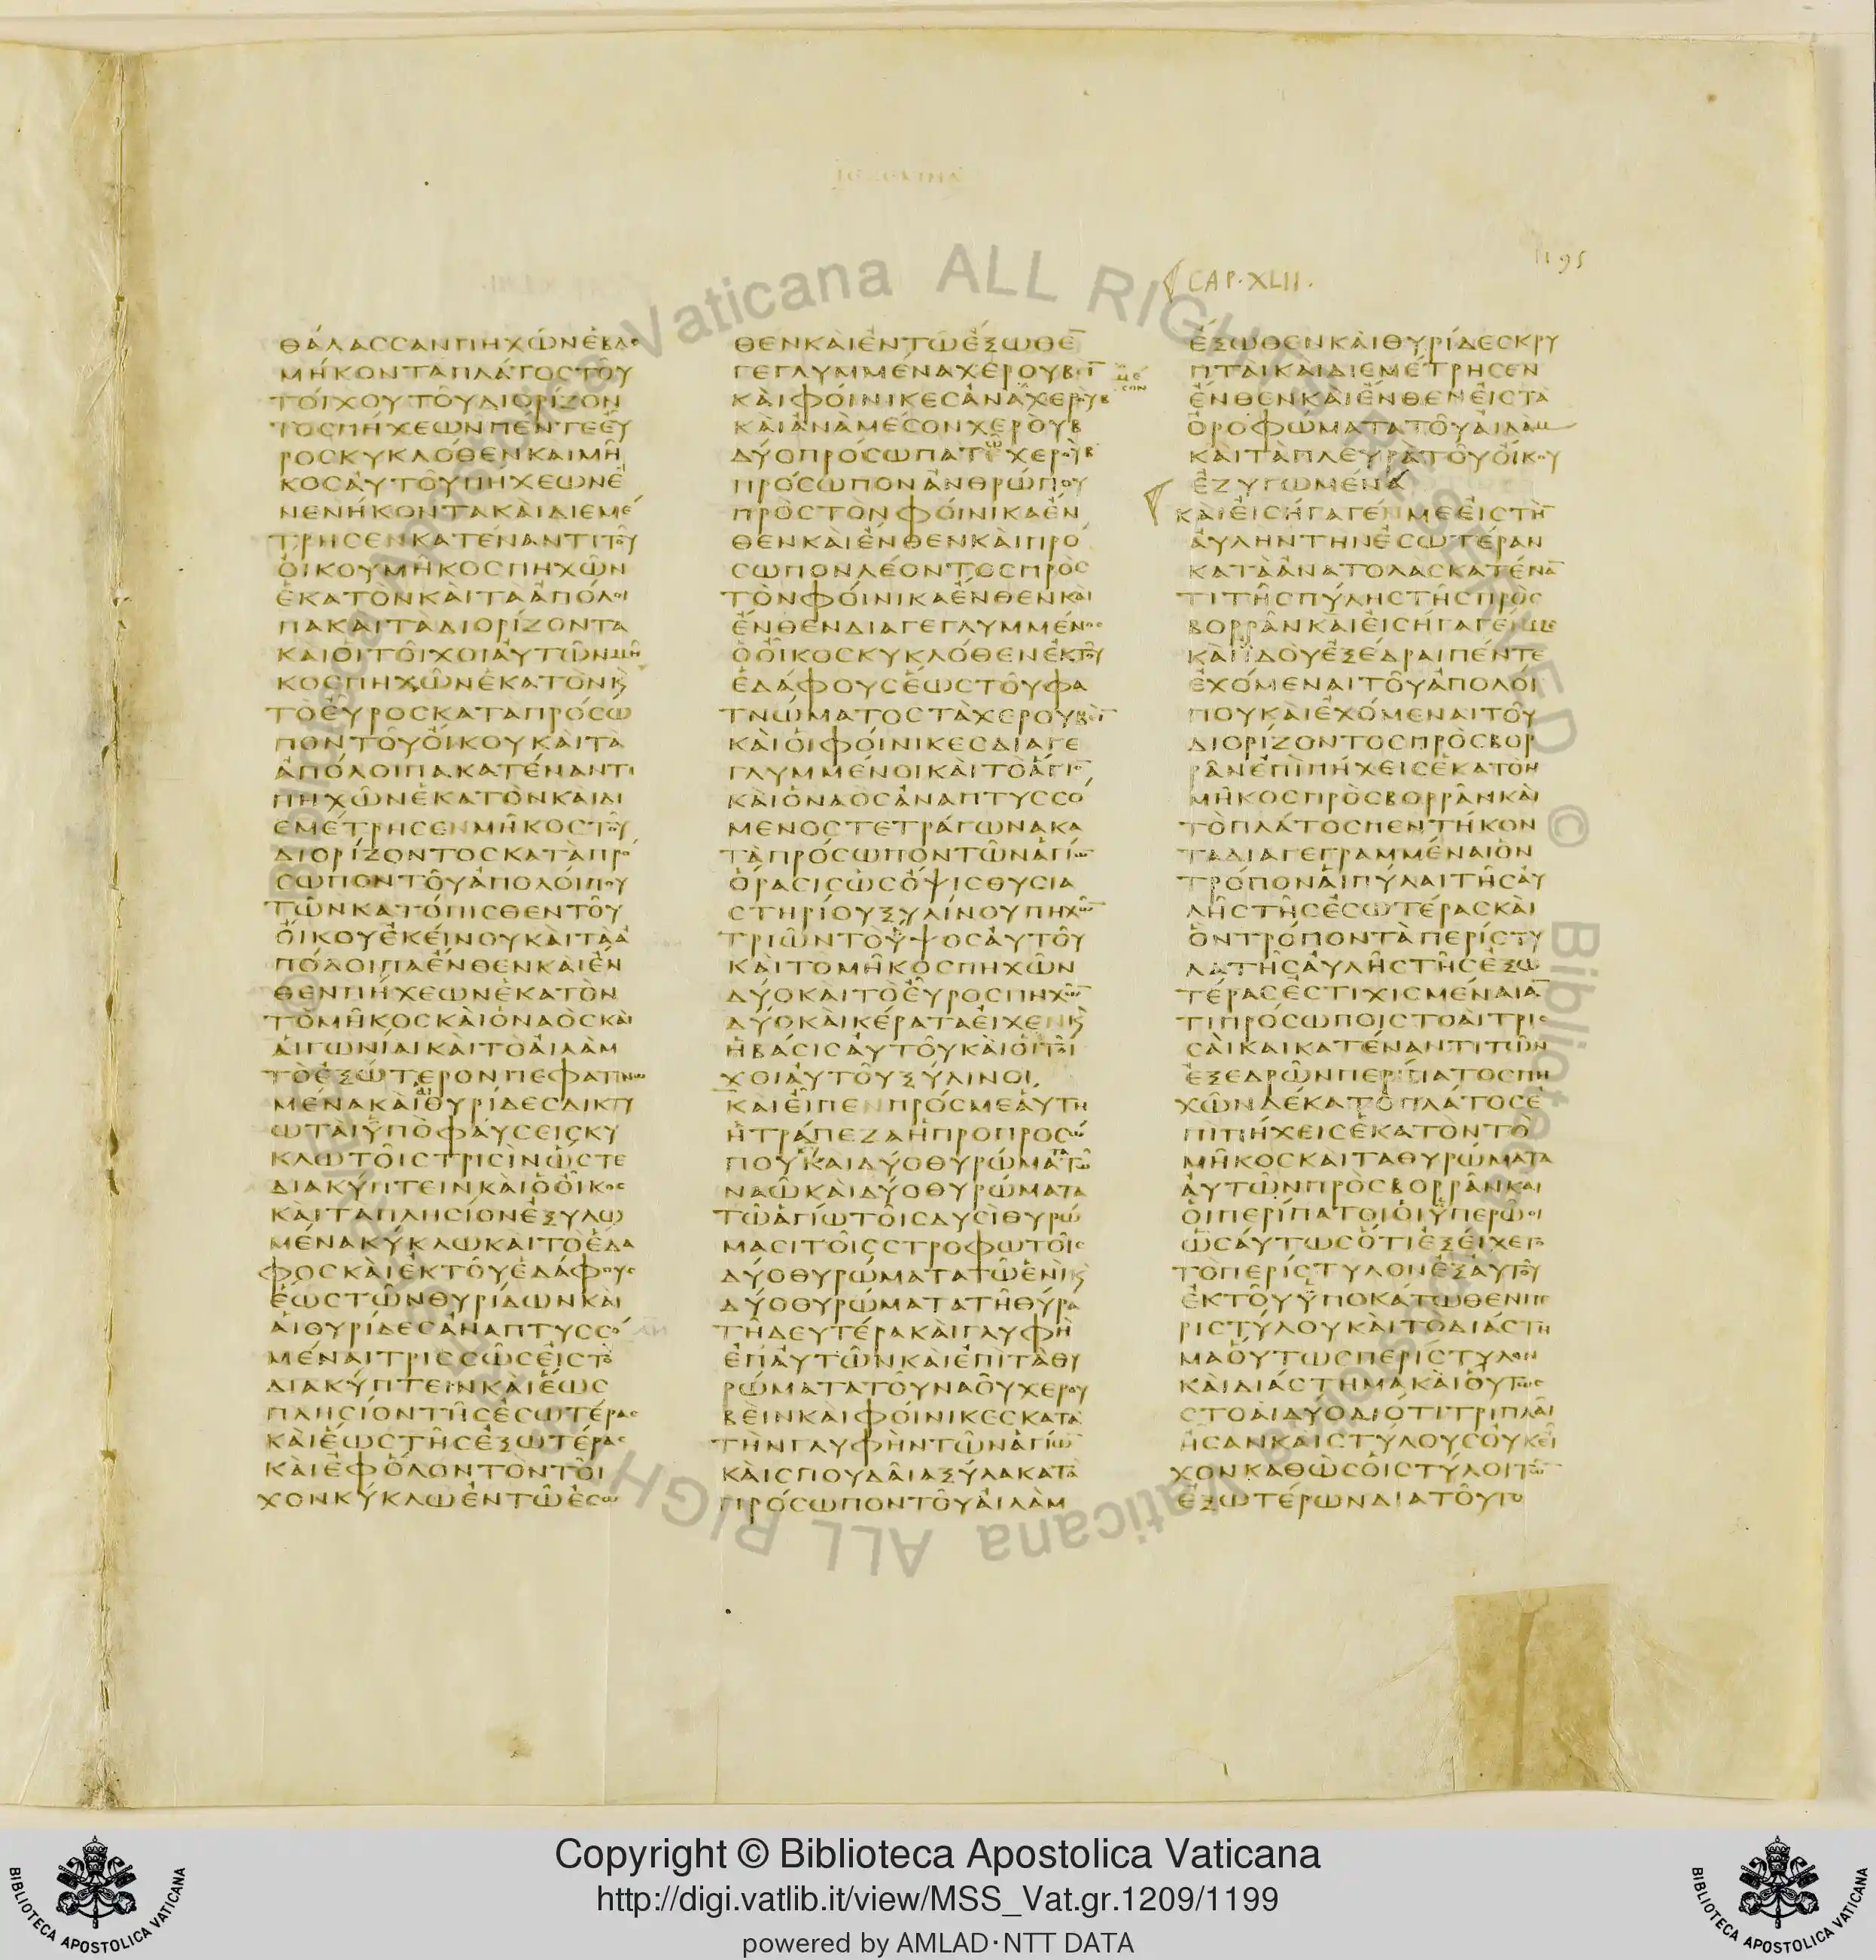 1195
CAP. XLII.
ΘΑΛΑССΑΝΠΗΧΩΝΕΒΔΟ
ΜΗΚΟΝΤΑΠΛΑΤΟСΤΟΥ
ΤΟΙΧΟΥΤΟΥΔΙΟΡΙΖΟΝ
ΤΟСΠΗΧΕΩΝΠΕΝΤΕΕΥ
ΡΟСΚΥΚΛΟΘΕΝΚΑΙΜΗ
ΚΟСΑΥΤΟΥΠΗΧΕΩΝΕ
ΝΕΝΗΚΟΝΤΑΚΑΙΔΙΕΜΕ
ΤΡΗСΕΝΚΑΤΕΝΑΝΤΙΤΟΥ
ΟΙΚΟΥΜΗΚΟСΠΗΧΩΝ
ΕΚΑΤΟΝΚΑΙΤΑΑΠΟΛΟΙ
ΠΑΚΑΙΤΑΔΙΟΡΙΖΟΝΤΑ
ΚΑΙΟΙΤΟΙΧΟΙΑΥΤΩΝΜΗ
ΚΟСΠΗΧΩΝΕΚΑΤΟΝΚ
ΤΟΕΥΡΟСΚΑΤΑΠΡΟСΩ
ΠΟΝΤΟΥΟΙΚΟΥΚΑΙΤΑ
ΑΠΟΛΟΙΠΑΚΑΤΕΝΑΝΤΙ
ΠΗΧΩΝΕΚΑΤΟΝΚΑΙΔΙ
ΕΜΕΤΡΗСΕΝΜΗΚΟСΤΟΥ
ΔΙΟΡΙΖΟΝΤΟСΚΑΤΑΠΡΟ
СΩΠΟΝΤΟΥΑΠΟΛΟΙΠΟΥ
ΤΩΝΚΑΤΟΠΙСΘΕΝΤΟΥ
ΟΙΚΟΥΕΚΕΙΝΟΥΚΑΙΤΑΑ
ΠΟΛΟΙΠΑΕΝΘΕΝΚΑΙΕΝ
ΘΕΝΠΗΧΕΩΝΕΚΑΤΟΝ
ΤΟΜΗΚΟСΚΑΙΟΝΑΟСΚΑΙ
ΑΙΓΩΝΙΑΙΚΑΙΤΟΑΙΛΑΜ
ΤΟΕΞΩΤΕΡΟΝΠΕΦΑΤΝΩ
ΜΕΝΑΚΑΙΑΙΘΥΡΙΔΕСΔΙΚΤΥ
ΩΤΑΙΥΠΟΦΑΥСΕΙСΚΥ
ΚΛΩΤΟΙСΤΡΙСΙΝΩСΤΕ
ΔΙΑΚΥΠΤΕΙΝΚΑΙΟΟΙΚΟС
ΚΑΙΤΑΠΛΗСΙΟΝΕΞΥΛΩ
ΜΕΝΑΚΥΚΛΩΚΑΙΤΟΕΔΑ
ΦΟСΚΑΙΕΚΤΟΥΕΔΑΦΟΥС
ΕΩСΤΩΝΘΥΡΙΔΩΝΚΑΙ
ΑΙΘΥΡΙΔΕСΑΝΑΠΤΥССΟ
ΜΕΝΑΙΤΡΙССΩСΕΙСΤΟ
ΔΙΑΚΥΠΤΕΙΝΚΑΙΕΩС
ΠΛΗСΙΟΝΤΗСΕСΩΤΕΡΑС
ΚΑΙΕΩСΤΗСΕΞΩΤΕΡΑС
ΚΑΙΕΦΟΛΟΝΤΟΝΤΟΙ
ΧΟΝΚΥΚΛΩΕΝΤΩΕСΩ
ΘΕΝΚΑΙΕΝΤΩΕΞΩΘΕ
ΓΕΓΛΥΜΜΕΝΑΧΕΡΟΥΒΙ
ΚΑΙΦΟΙΝΙΚΕСΑΝΑΧΕΡΟΥΒ
ΚΑΙΑΝΑΜΕСΟΝΧΕΡΟΥΒ
ΔΥΟΠΡΟСΩΠΑΤΩΧΕΡΟΥΒ
ΠΡΟСΩΠΟΝΑΝΘΡΩΠΟΥ
ΠΡΟСΤΟΝΦΟΙΝΙΚΑΕΝ
ΘΕΝΚΑΙΕΝΘΕΝΚΑΙΠΡΟ
СΩΠΟΝΛΕΟΝΤΟСΠΡΟС
ΤΟΝΦΟΙΝΙΚΑΕΝΘΕΝΚΑΙ
ΕΝΘΕΝΔΙΑΓΕΓΛΥΜΜΕΝΟС
ΟΟΙΚΟСΚΥΚΛΟΘΕΝΕΚΤΟΥ
ΕΔΑΦΟΥСΕΩСΤΟΥΦΑ
ΤΝΩΜΑΤΟСΤΑΧΕΡΟΥΒΙ
ΚΑΙΟΙΦΟΙΝΙΚΕСΔΙΑΓΕ
ΓΛΥΜΜΕΝΟΙΚΑΙΤΟΑΓΙΟ
ΚΑΙΟΝΑΟСΑΝΑΠΤΥССΟ
ΜΕΝΟСΤΕΤΡΑΓΩΝΑΚΑ
ΤΑΠΡΟСΩΠΟΝΤΩΝΑΓΙΩ
ΟΡΑСΙСΩСΟΨΙСΘΥСΙΑ
СΤΗΡΙΟΥΞΥΛΙΝΟΥΠΗΧΩ
ΤΡΙΩΝΤΟΥΨΟСΑΥΤΟΥ
ΚΑΙΤΟΜΗΚΟСΠΗΧΩΝ
ΔΥΟΚΑΙΤΟΕΥΡΟСΠΗΧΩ
ΔΥΟΚΑΙΚΕΡΑΤΑΕΙΧΕΝΚ
ΗΒΑСΙСΑΥΤΟΥΚΑΙΟΙΤΟΙ
ΧΟΙΑΥΤΟΥΞΥΛΙΝΟΙ
ΚΑΙΕΙΠΕΝΠΡΟСΜΕΑΥΤΗ
ΗΤΡΑΠΕΖΑΗΠΡΟΠΡΟСΩ
ΠΟΥΚΑΙΔΥΟΘΥΡΩΜΑΤΑΤΩ
ΝΑΩΚΑΙΔΥΟΘΥΡΩΜΑΤΑ
ΤΩΑΓΙΩΤΟΙСΔΥСΙΘΥΡΩ
ΜΑСΙΤΟΙССΤΡΟΦΩΤΟΙС
ΔΥΟΘΥΡΩΜΑΤΑΤΩΕΝΙΚ
ΔΥΟΘΥΡΩΜΑΤΑΤΗΘΥΡΑ
ΤΗΔΕΥΤΕΡΑΚΑΙΓΛΥΦΗ
ΕΠΑΥΤΩΝΚΑΙΕΠΙΤΑΘΥ
ΡΩΜΑΤΑΤΟΥΝΑΟΥΧΕΡΟΥ
ΒΕΙΝΚΑΙΦΟΙΝΙΚΕСΚΑΤΑ
ΤΗΝΓΛΥΦΗΝΤΩΝΑΓΙΩ
ΚΑΙСΠΟΥΔΑΙΑΞΥΛΑΚΑΤΑ
ΠΡΟСΩΠΟΝΤΟΥΑΙΛΑΜ
ΕΞΩΘΕΝΚΑΙΘΥΡΙΔΕСΚΡΥ
ΠΤΑΙΚΑΙΔΙΕΜΕΤΡΗСΕΝ
ΕΝΘΕΝΚΑΙΕΝΘΕΝΕΙСΤΑ
ΟΡΟΦΩΜΑΤΑΤΟΥΑΙΛΑΜ
ΚΑΙΤΑΠΛΕΥΡΑΤΟΥΟΙΚΟΥ
ΕΖΥΓΩΜΕΝΑ
ΚΑΙΕΙСΗΓΑΓΕΝΜΕΕΙСΤΗ
ΑΥΛΗΝΤΗΝΕСΩΤΕΡΑΝ
ΚΑΤΑΑΝΑΤΟΛΑСΚΑΤΕΝΑ
ΤΙΤΗСΠΥΛΗСΤΗСΠΡΟС
ΒΟΡΡΑΝΚΑΙΕΙСΗΓΑΓΕΜΕ
ΚΑΙΙΔΟΥΕΞΕΔΡΑΙΠΕΝΤΕ
ΕΧΟΜΕΝΑΙΤΟΥΑΠΟΛΟΙ
ΠΟΥΚΑΙΕΧΟΜΕΝΑΙΤΟΥ
ΔΙΟΡΙΖΟΝΤΟСΠΡΟСΒΟΡ
ΡΑΝΕΠΙΠΗΧΕΙСΕΚΑΤΟΝ
ΜΗΚΟСΠΡΟСΒΟΡΡΑΝΚΑΙ
ΤΟΠΛΑΤΟСΠΕΝΤΗΚΟΝ
ΤΑΔΙΑΓΕΓΡΑΜΜΕΝΑΙΟΝ
ΤΡΟΠΟΝΑΙΠΥΛΑΙΤΗСΑΥ
ΛΗСΤΗСΕСΩΤΕΡΑСΚΑΙ
ΟΝΤΡΟΠΟΝΤΑΠΕΡΙСΤΥ
ΛΑΤΗСΑΥΛΗСΤΗСΕΞΩ
ΤΕΡΑСΕСΤΙΧΙСΜΕΝΑΙΑ
ΤΙΠΡΟСΩΠΟΙСΤΟΑΙΤΡΙС
СΑΙΚΑΙΚΑΤΕΝΑΝΤΙΤΩΝ
ΕΞΕΔΡΩΝΠΕΡΙΠΑΤΟСΠΗ
ΧΩΝΔΕΚΑΤΟΠΛΑΤΟСΕ
ΠΙΠΗΧΕΙСΕΚΑΤΟΝΤΟ
ΜΗΚΟСΚΑΙΤΑΘΥΡΩΜΑΤΑ
ΑΥΤΩΝΠΡΟСΒΟΡΡΑΝΚΑΙ
ΟΙΠΕΡΙΠΑΤΟΙΟΙΥΠΕΡΩΟΙ
ΩСΑΥΤΩСΟΤΙΕΞΕΙΧΕΤΟ
ΤΟΠΕΡΙСΤΥΛΟΝΕΞΑΥΤΟΥ
ΕΚΤΟΥΥΠΟΚΑΤΩΘΕΝΠΕ
ΡΙСΤΥΛΟΥΚΑΙΤΟΔΙΑСΤΗ
ΜΑΟΥΤΩСΠΕΡΙСΤΥΛΟΝ
ΚΑΙΔΙΑСΤΗΜΑΚΑΙΟΥΤΩС
СΤΟΑΙΔΥΟΔΙΟΤΙΤΡΙΠΛΑΙ
ΗСΑΝΚΑΙСΤΥΛΟΥСΟΥΚΕΙ
ΧΟΝΚΑΘΩСΟΙСΤΥΛΟΙΤΩ
ΕΞΩΤΕΡΩΝΔΙΑΤΟΥΤΟ
Copyright © Biblioteca Apostolica Vaticana
http://digi.vatlib.it/view/MSS_Vat.gr.1209/1199
powered by AMLAD·NTT DATA
BIBLIOTECA APOSTOLICA VATICANA
BIBLIOTECA APOSTOLICA VATICANA